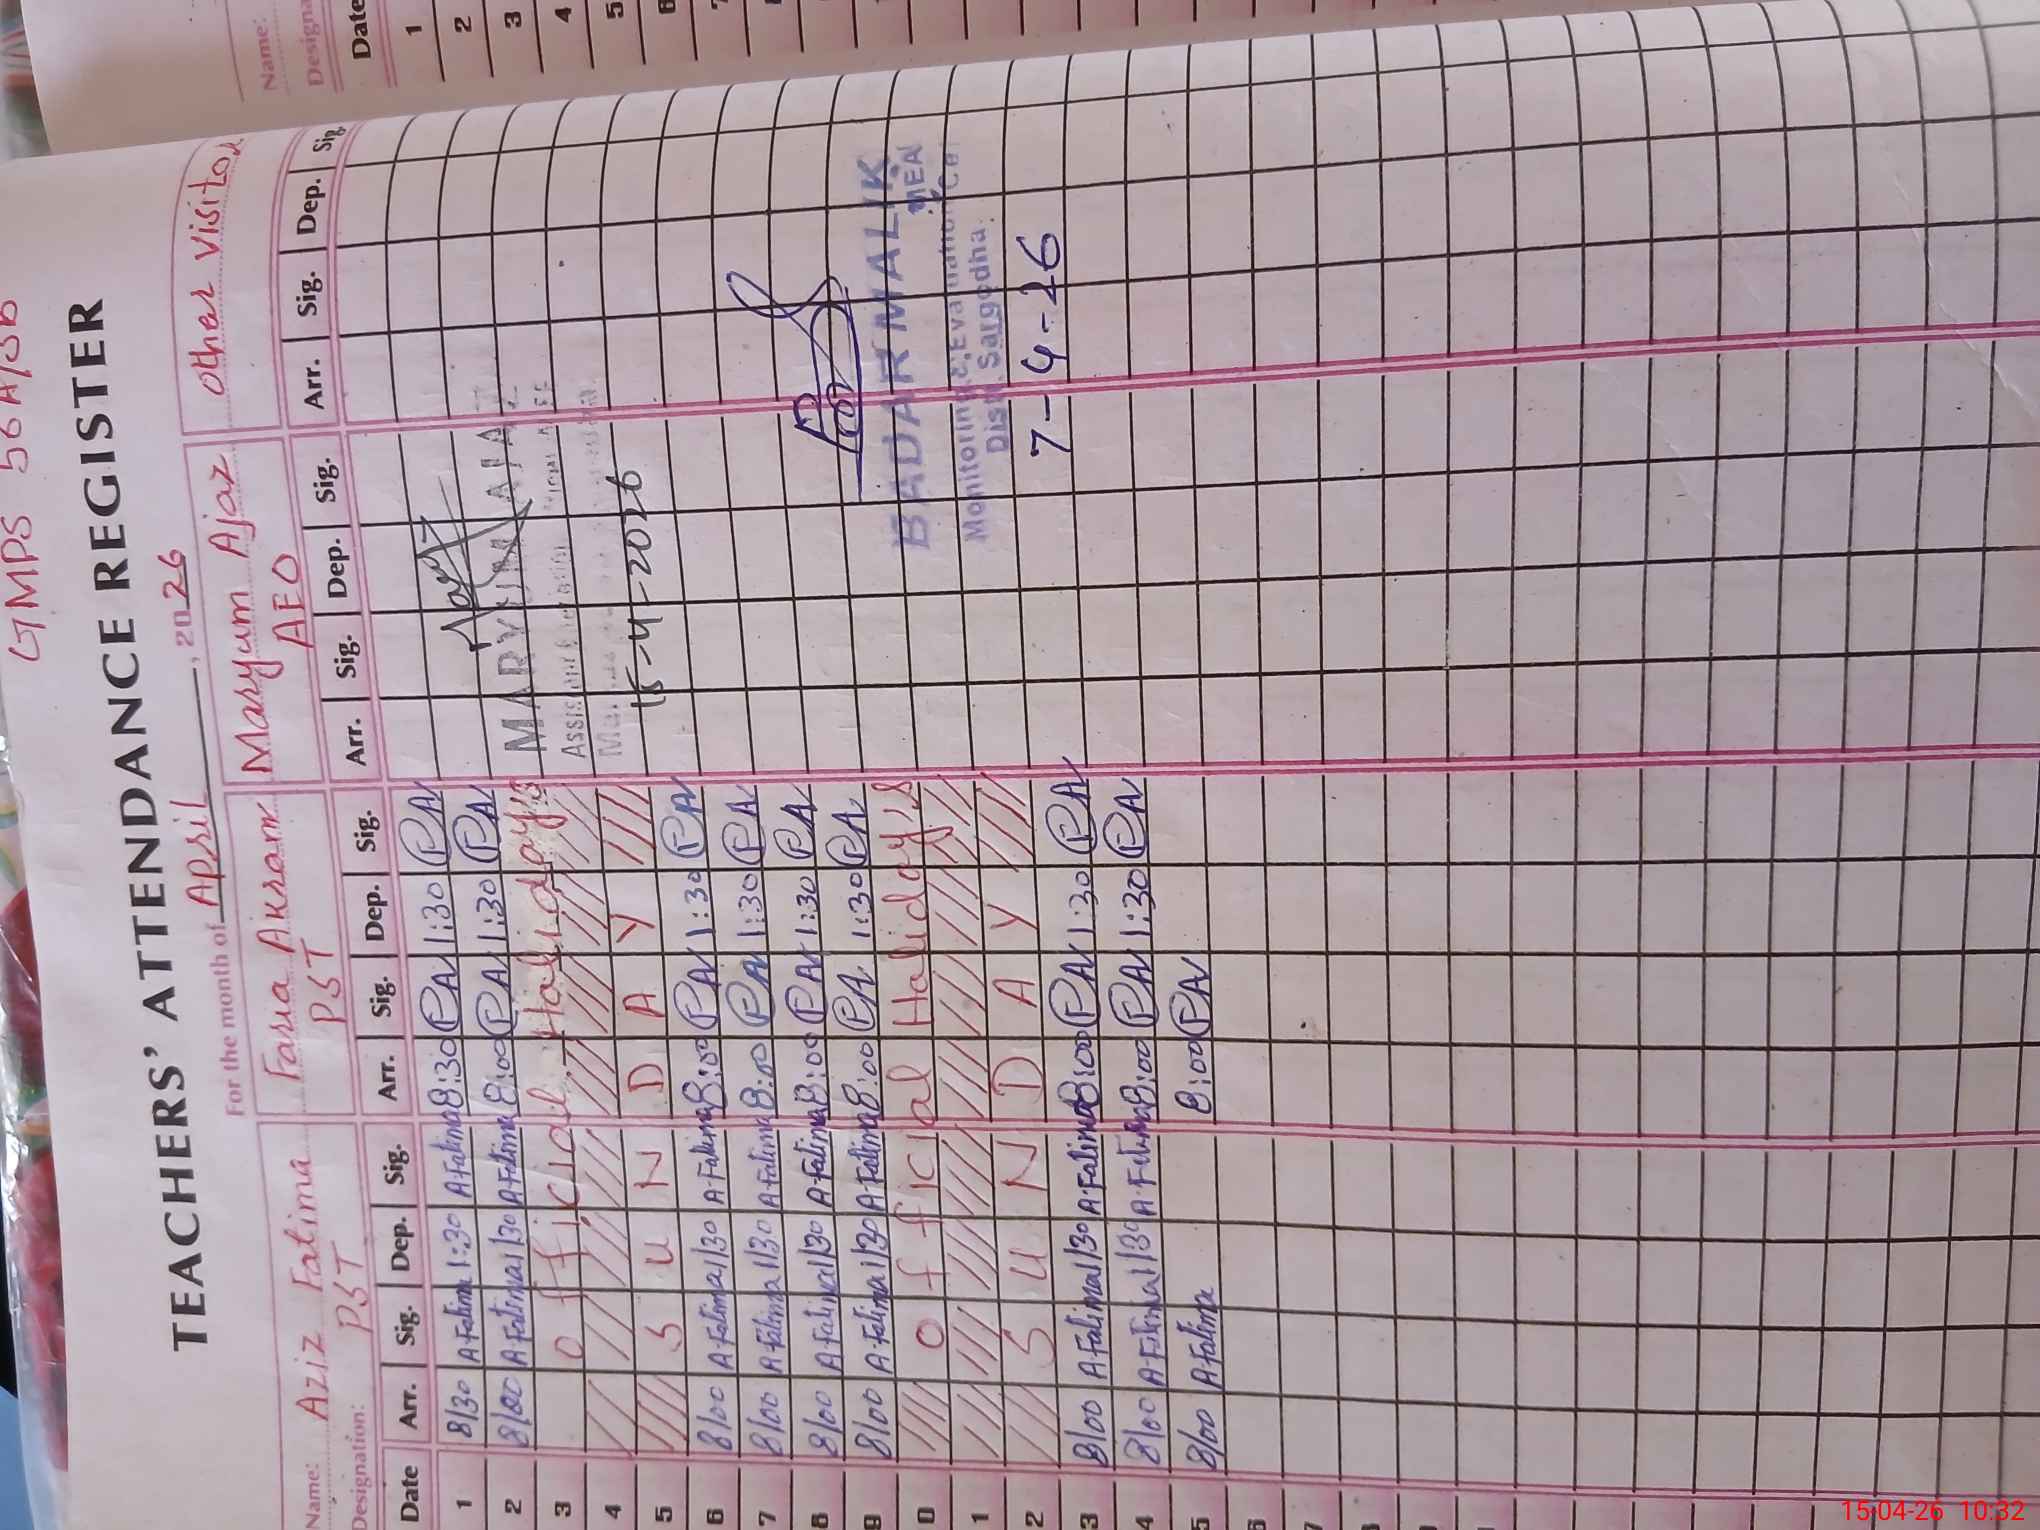 GMPS 56A/SB
TEACHERS' ATTENDANCE REGISTER
For the month of April, 2026
Name: Aziz Fatima Faria Akram Maryum Ajaz Other Visitor
Designation: PST PST AEO
Date Arr. Sig. Dep. Sig. Arr. Sig. Dep. Sig. Arr. Sig. Dep. Sig. Arr. Sig. Dep. Sig.
1 8/30 A.Fatima 1:30 A.Fatima 8:30 1:30
2 8/00 A.Fatima 1/30 A.Fatima 8:00 1:30
MARYUM AJAZ
3 Official Holidays
Assistant Education
4
5 SUNDAY 15-4-2026
6 8/00 A.Fatima 1/30 A.Fatima 8:00 1:30
7 8/00 A.Fatima 1/30 A.Fatima 8:00 1:30
8 8/00 A.Fatima 1/30 A.Fatima 8:00 1:30
9 8/00 A.Fatima 1/30 A.Fatima 8:00 1:30
0 Official Holiday,s BADAR MALIK
MEA
1 Monitoring & Evaluation Cel
Distt. Sargodha.
2 SUNDAY 7-4-26
3 8/00 A.Fatima 1/30 A.Fatima 8:00 1:30
4 8/00 A.Fatima 1/30 A.Fatima 8:00 1:30
5 8/00 A.Fatima 8:00
6
7
8
9
Name:
Designa
Date
1
2
3
4
5
6
7
15-04-26 10:32